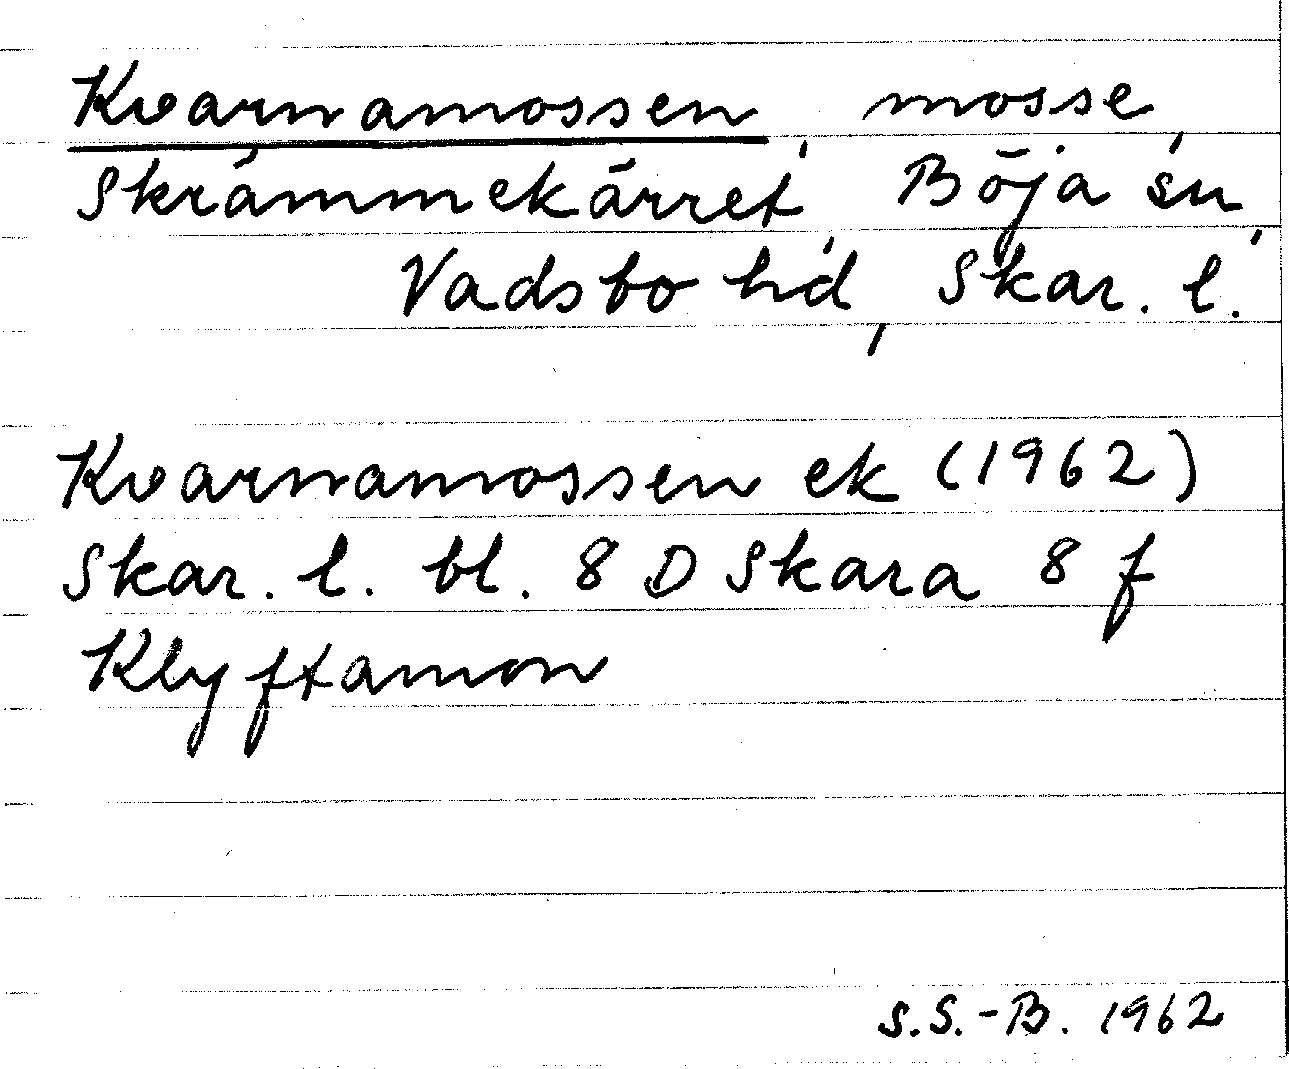 Kvarnamossen, mosse,
Skrämmekärret, Böja sn,
Vadsbo hd, Skar. l.
Kvarnamossen ek (1962)
Skar. l. bl. 8 D Skara 8 f
Klyftamon
S.S.-B. 1962